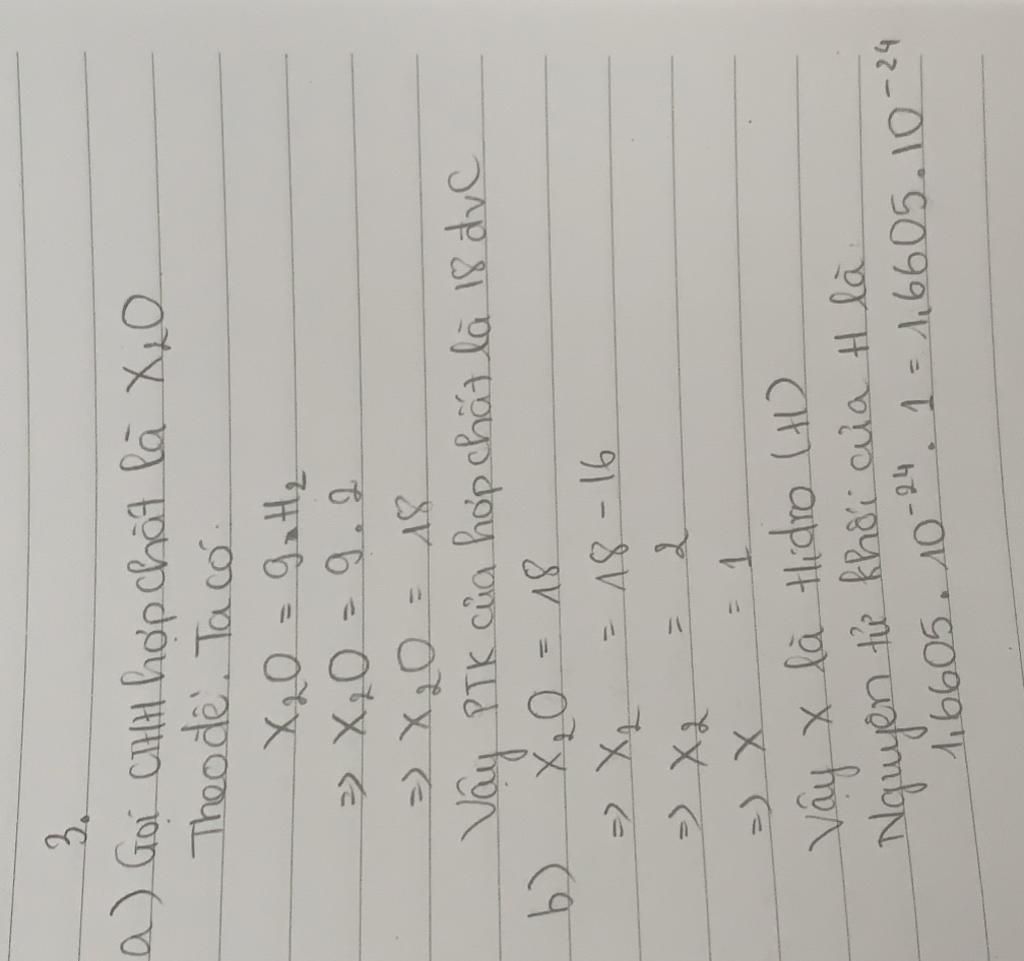 3.
a) Gọi CTHH hợp chất là X₂O
Theo đề. Ta có.
X₂O = 9.H₂
=> X₂O = 9.2
=> X₂O = 18
Vậy PTK của hợp chất là 18 đvC
b) X₂O = 18
=> X₂ = 18 - 16
=> X₂ = 2
=> X = 1
Vậy X là Hidro (H)
Nguyên tử khối của H là.
1,6605.10⁻²⁴.1 = 1,6605.10⁻²⁴